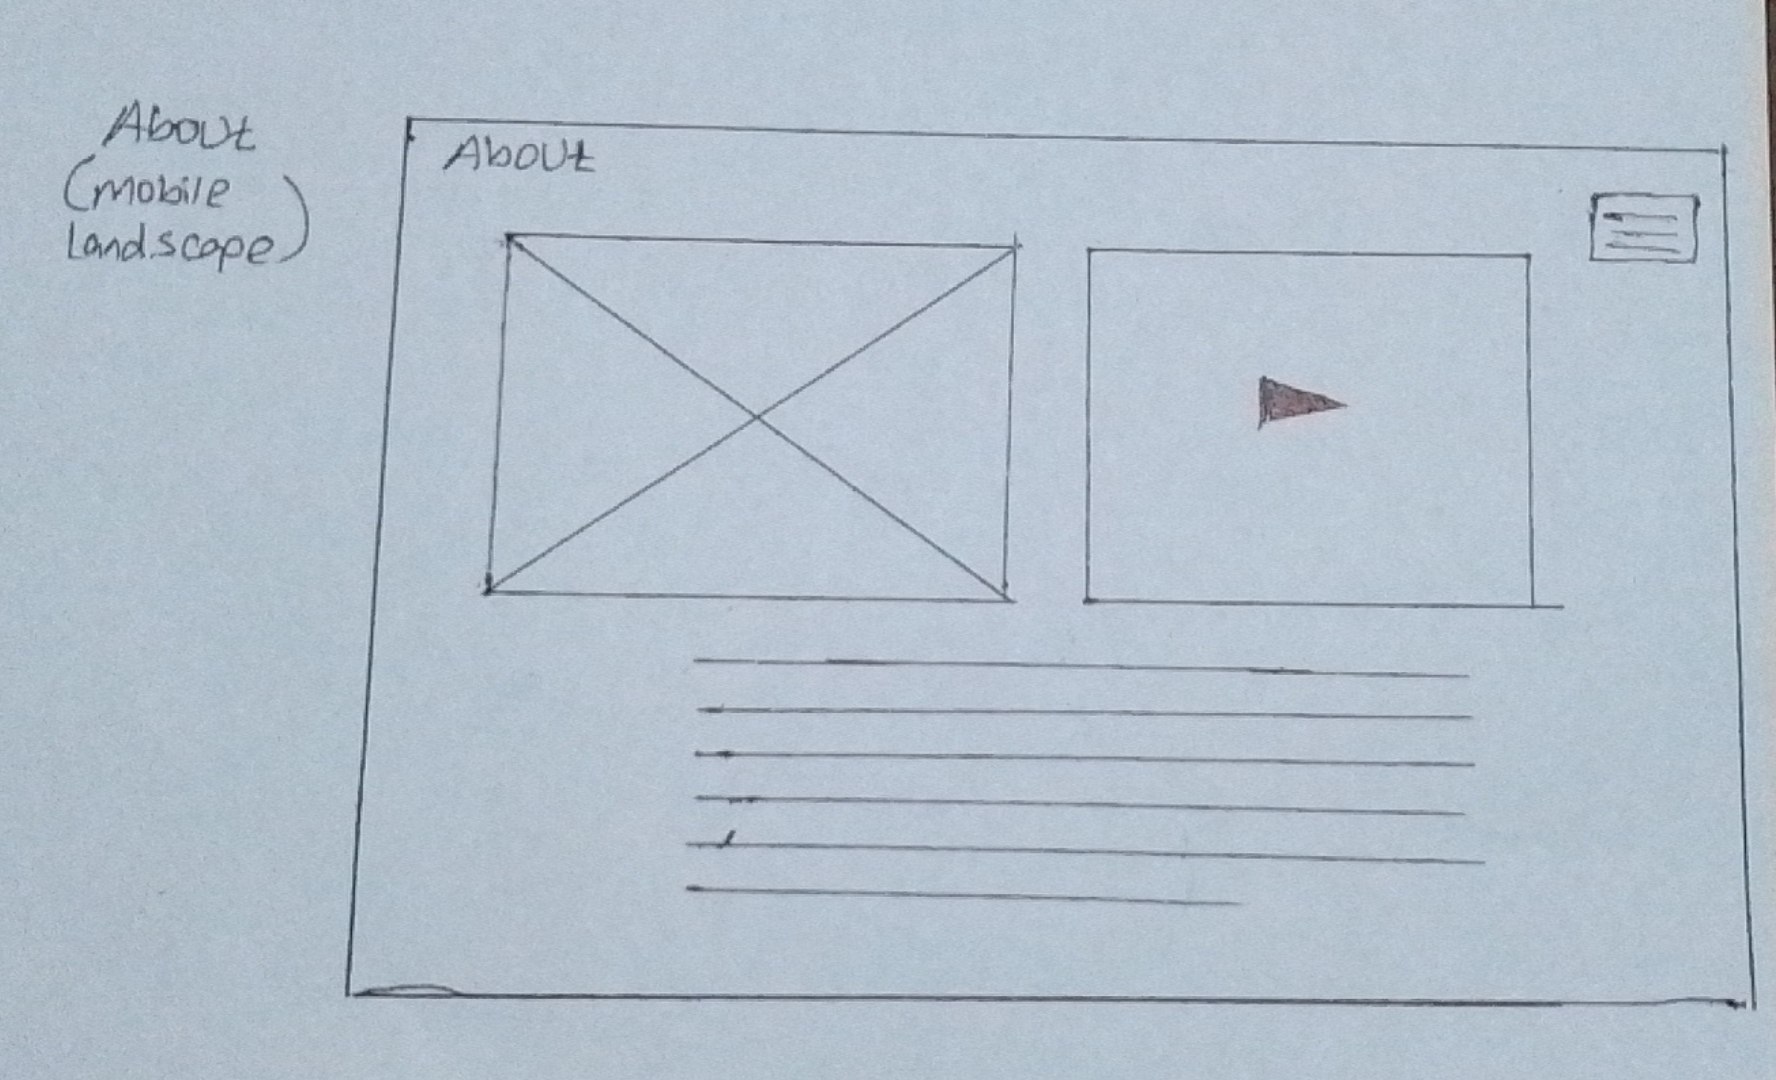 About
(mobile
landscape)
About